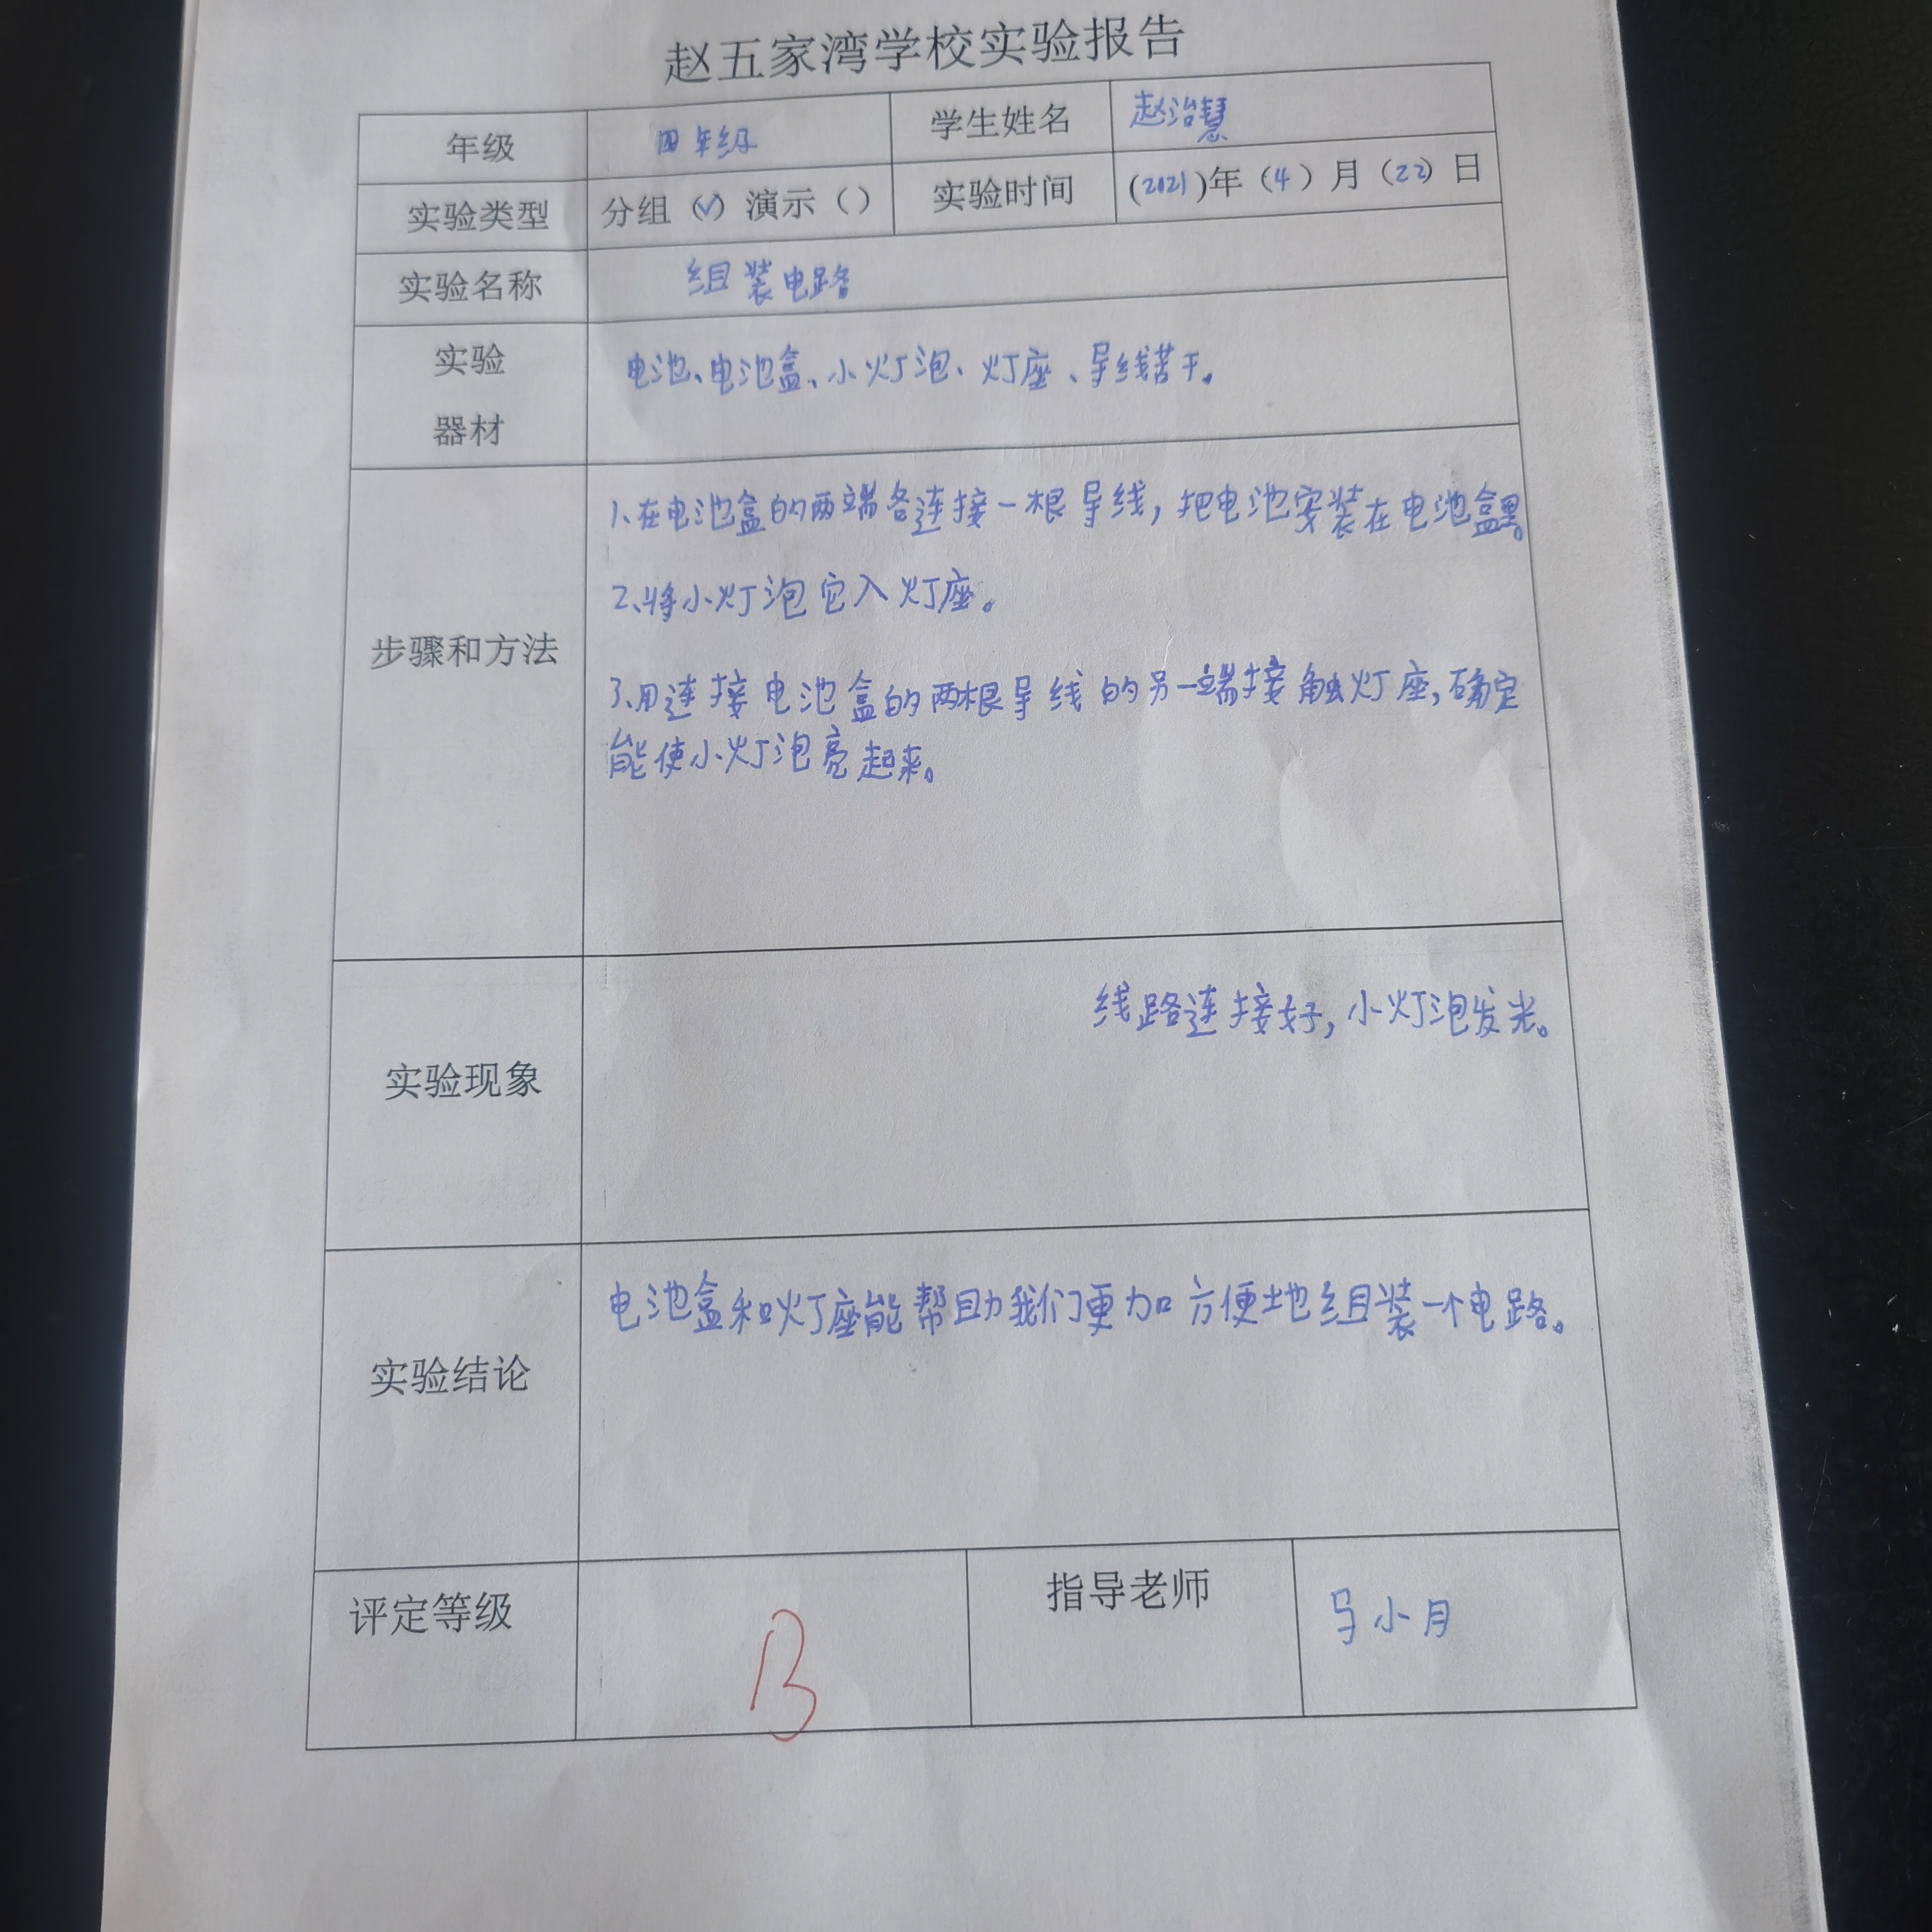 赵五家湾学校实验报告
年级 四年级 学生姓名 赵治慧
实验类型 分组（√）演示（） 实验时间 (2021)年（4）月（22）日
实验名称 组装电路
实验
器材
电池、电池盒、小灯泡、灯座、导线若干。
步骤和方法
1、在电池盒的两端各连接一根导线，把电池安装在电池盒里。
2、将小灯泡它入灯座。
3、用连接电池盒的两根导线的另一端接触灯座，确定
能使小灯泡亮起来。
实验现象
线路连接好，小灯泡发光。
实验结论
电池盒和灯座能帮助我们更加方便地组装一个电路。
评定等级 B 指导老师 马小月